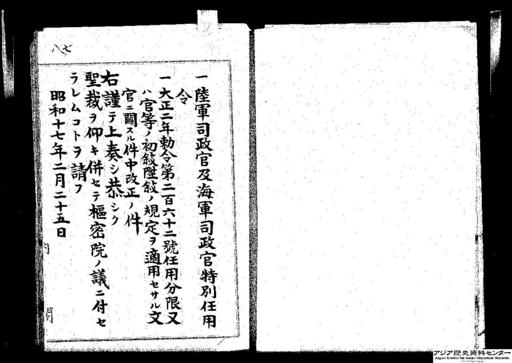 一陸軍司政官及海軍司政官特別任用
令
一大正二年勅令第二百六十二號任用分限又
ハ官等ノ初敍陞敍ノ規定ヲ適用セサル文
官ニ關スル件中改正ノ件
右謹テ上奏シ恭シク
聖裁ヲ仰キ併セテ樞密院ノ議ニ付セ
ラレムコトヲ請フ
昭和十七年二月二十五日
内 閣
八七
アジア歴史資料センター
Japan Center for Asian Historical Records